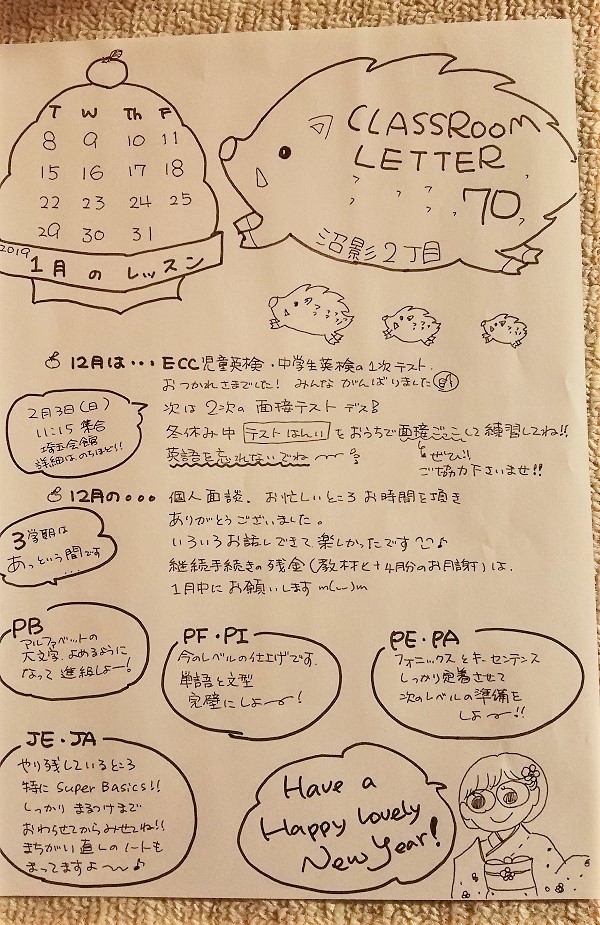 T W Th F
8 9 10 11
15 16 17 18
22 23 24 25
29 30 31
2019
1月のレッスン
CLASSROOM
LETTER
70
沼影2丁目
12月は・・・ ECC児童英検・中学生英検の1次テスト.
おつかれさまでした! みんな がんばりました
次は 2次の 面接テスト デス!
冬休み中 テストはんい を おうちで面接ごっこして 練習してね!!
英語を忘れないでね〜
ぜひ!!
ご協力下さいませ!!
2月3日(日)
11:15 集合
埼玉会館
詳細は のちほど!!
12月の・・・ 個人面談. お忙しいところ お時間を頂き
ありがとうございました。
いろいろお話しできて 楽しかったです♪
継続手続きの残金(教材ヒ+4月分のお月謝)は、
1月中に お願いします m(_ _)m
3学期は
あっという間です
....
PB
アルファベットの
大文字 よめるように
なって 進級しよー!
PF・PI
今のレベルの仕上げです.
単語と文型
完璧にしよ〜!
PE・PA
フォニックスとキーセンテンス
しっかり定着させて
次のレベルの準備を
しよ〜!!
JE・JA
やり残しているところ
特に Super Basics!!
しっかり まるつけまで
おわらせてからみせてね!!
まちがい直しのノートも
まってますよ〜♪
Have a
Happy lovely
New Year!